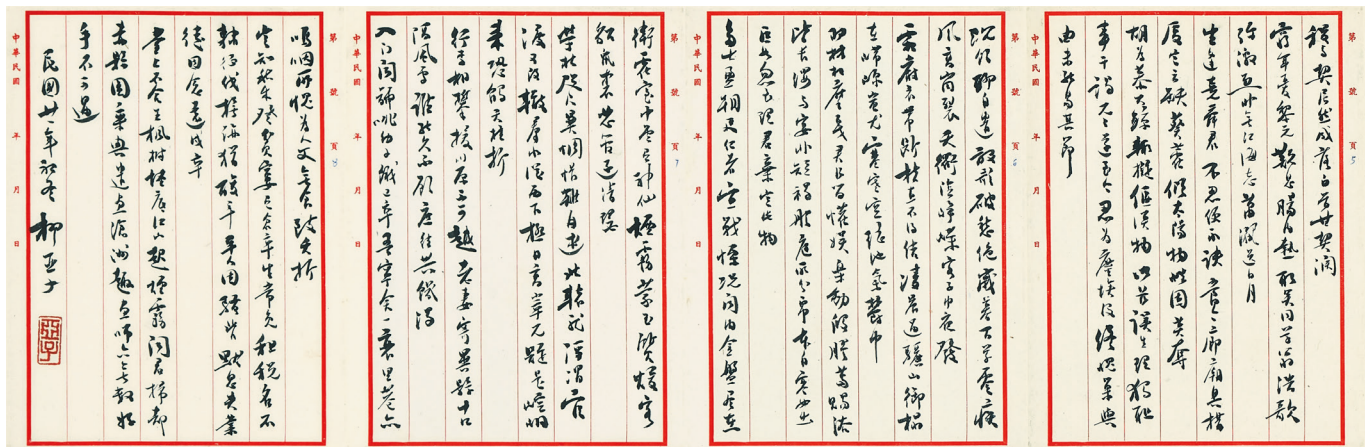 第 號 頁 5
稷與契居然成濩白首甘契闊
窮年憂黎元歎息腸內熱取笑同學翁浩歌
彌激烈非無江海志蕭灑送日月
生逢堯舜君不忍便永訣當今廊廟具構
廈豈云缺葵藿傾太陽物性固莫奪
胡為慕大鯨輒擬偃溟渤以茲誤生理獨恥
事干謁兀兀遂至今忍為塵埃沒終愧巢與
由未能易其節
中華民國 年 月 日
第 號 頁 6
沉飲聊自遣放歌破愁絕歲暮百草零疾
風高岡裂天衢陰崢嶸客子中夜發
霜嚴衣帶斷指直不得結凌晨過驪山御榻
在嵽嵲蚩尤塞寒空瑤池氣鬱律
羽林相摩戛君臣留懽娛樂動殷膠葛賜浴
皆長纓與宴非短褐彤庭所分帛本自寒女出
臣如忽至理君棄此物
多士盈朝廷仁者宜戰慄況聞內金盤盡在
中華民國 年 月 日
第 號 頁 7
衛霍室中堂有神仙煙霧蒙玉質煖客
貂鼠裘悲管逐清瑟
榮枯咫尺異惆悵難再述北轅就涇渭官
渡又改轍羣冰從西下極目高崒兀疑是崆峒
來恐觸天柱折
行李相攀援川廣不可越老妻寄異縣十口
隔風雪誰能久不顧庶往共飢渴
入門聞號咷幼子餓已卒吾寧舍一哀里巷亦
中華民國 年 月 日
第 號 頁 8
嗚咽所愧為人父無食致夭折
豈知秋禾登貧窶有倉卒生常免租稅名不
隸征伐撫跡猶酸辛平人固騷屑默思失業
徒因念遠戍卒
堂上不合生楓樹怪底江山起煙霧聞君掃却
赤縣圖乘興遣畫滄洲趣畫師亦無數好
手不可遇
民國卅一年初冬 柳亞子
亞子
中華民國 年 月 日